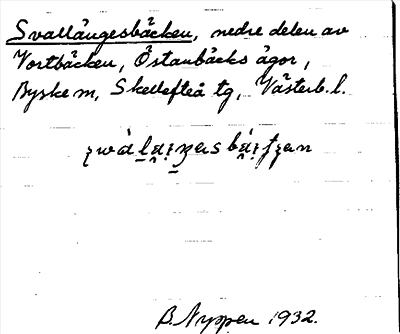 Svallängesbäcken, nedre delen av
Vortbäcken, Östanbäcks ägor,
Byske m, Skellefteå tg, Västerb. l.
B. Nyppen 1932.